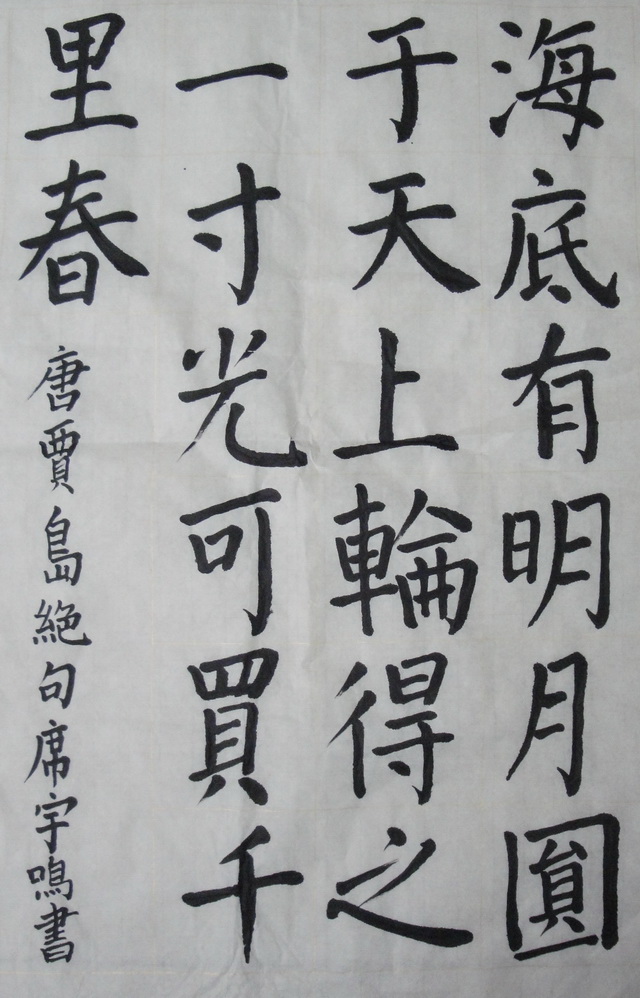 海底有明月圓
于天上輪得之
一寸光可買千
里春
唐賈島絕句席宇鳴書